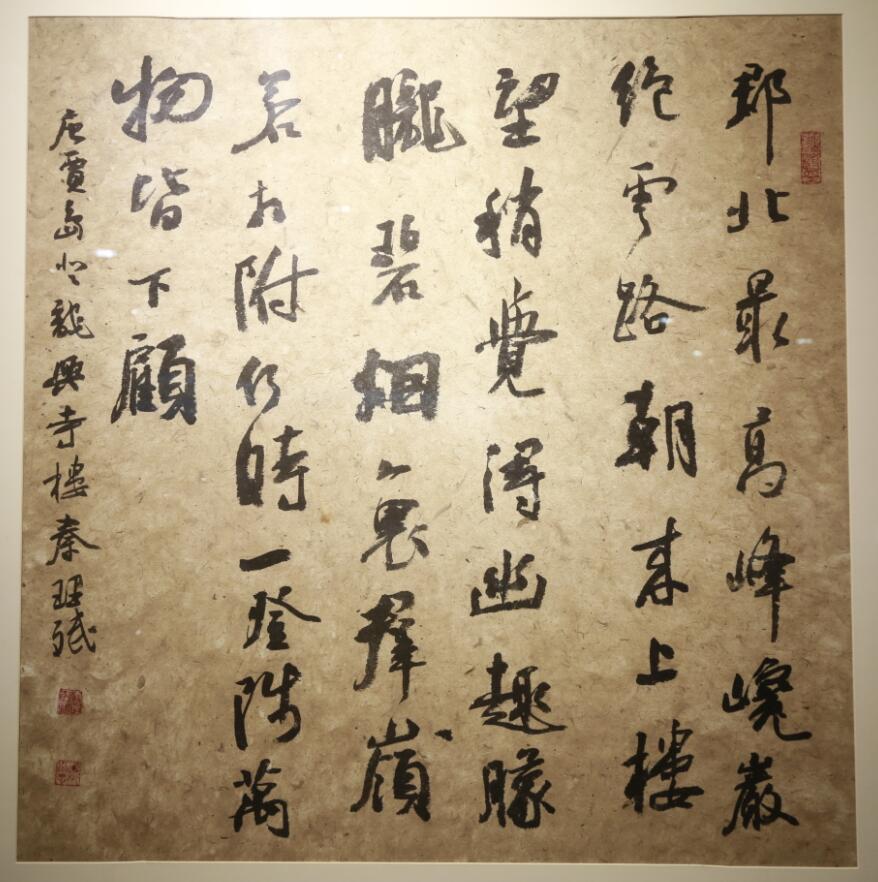 郡北最高峰巉巖
絶雲路朝来上樓
望稍覺得幽趣朦
朧碧烟裏群嶺
若相附何時一登陟萬
物皆下顧
唐賈島登龍興寺樓秦理斌